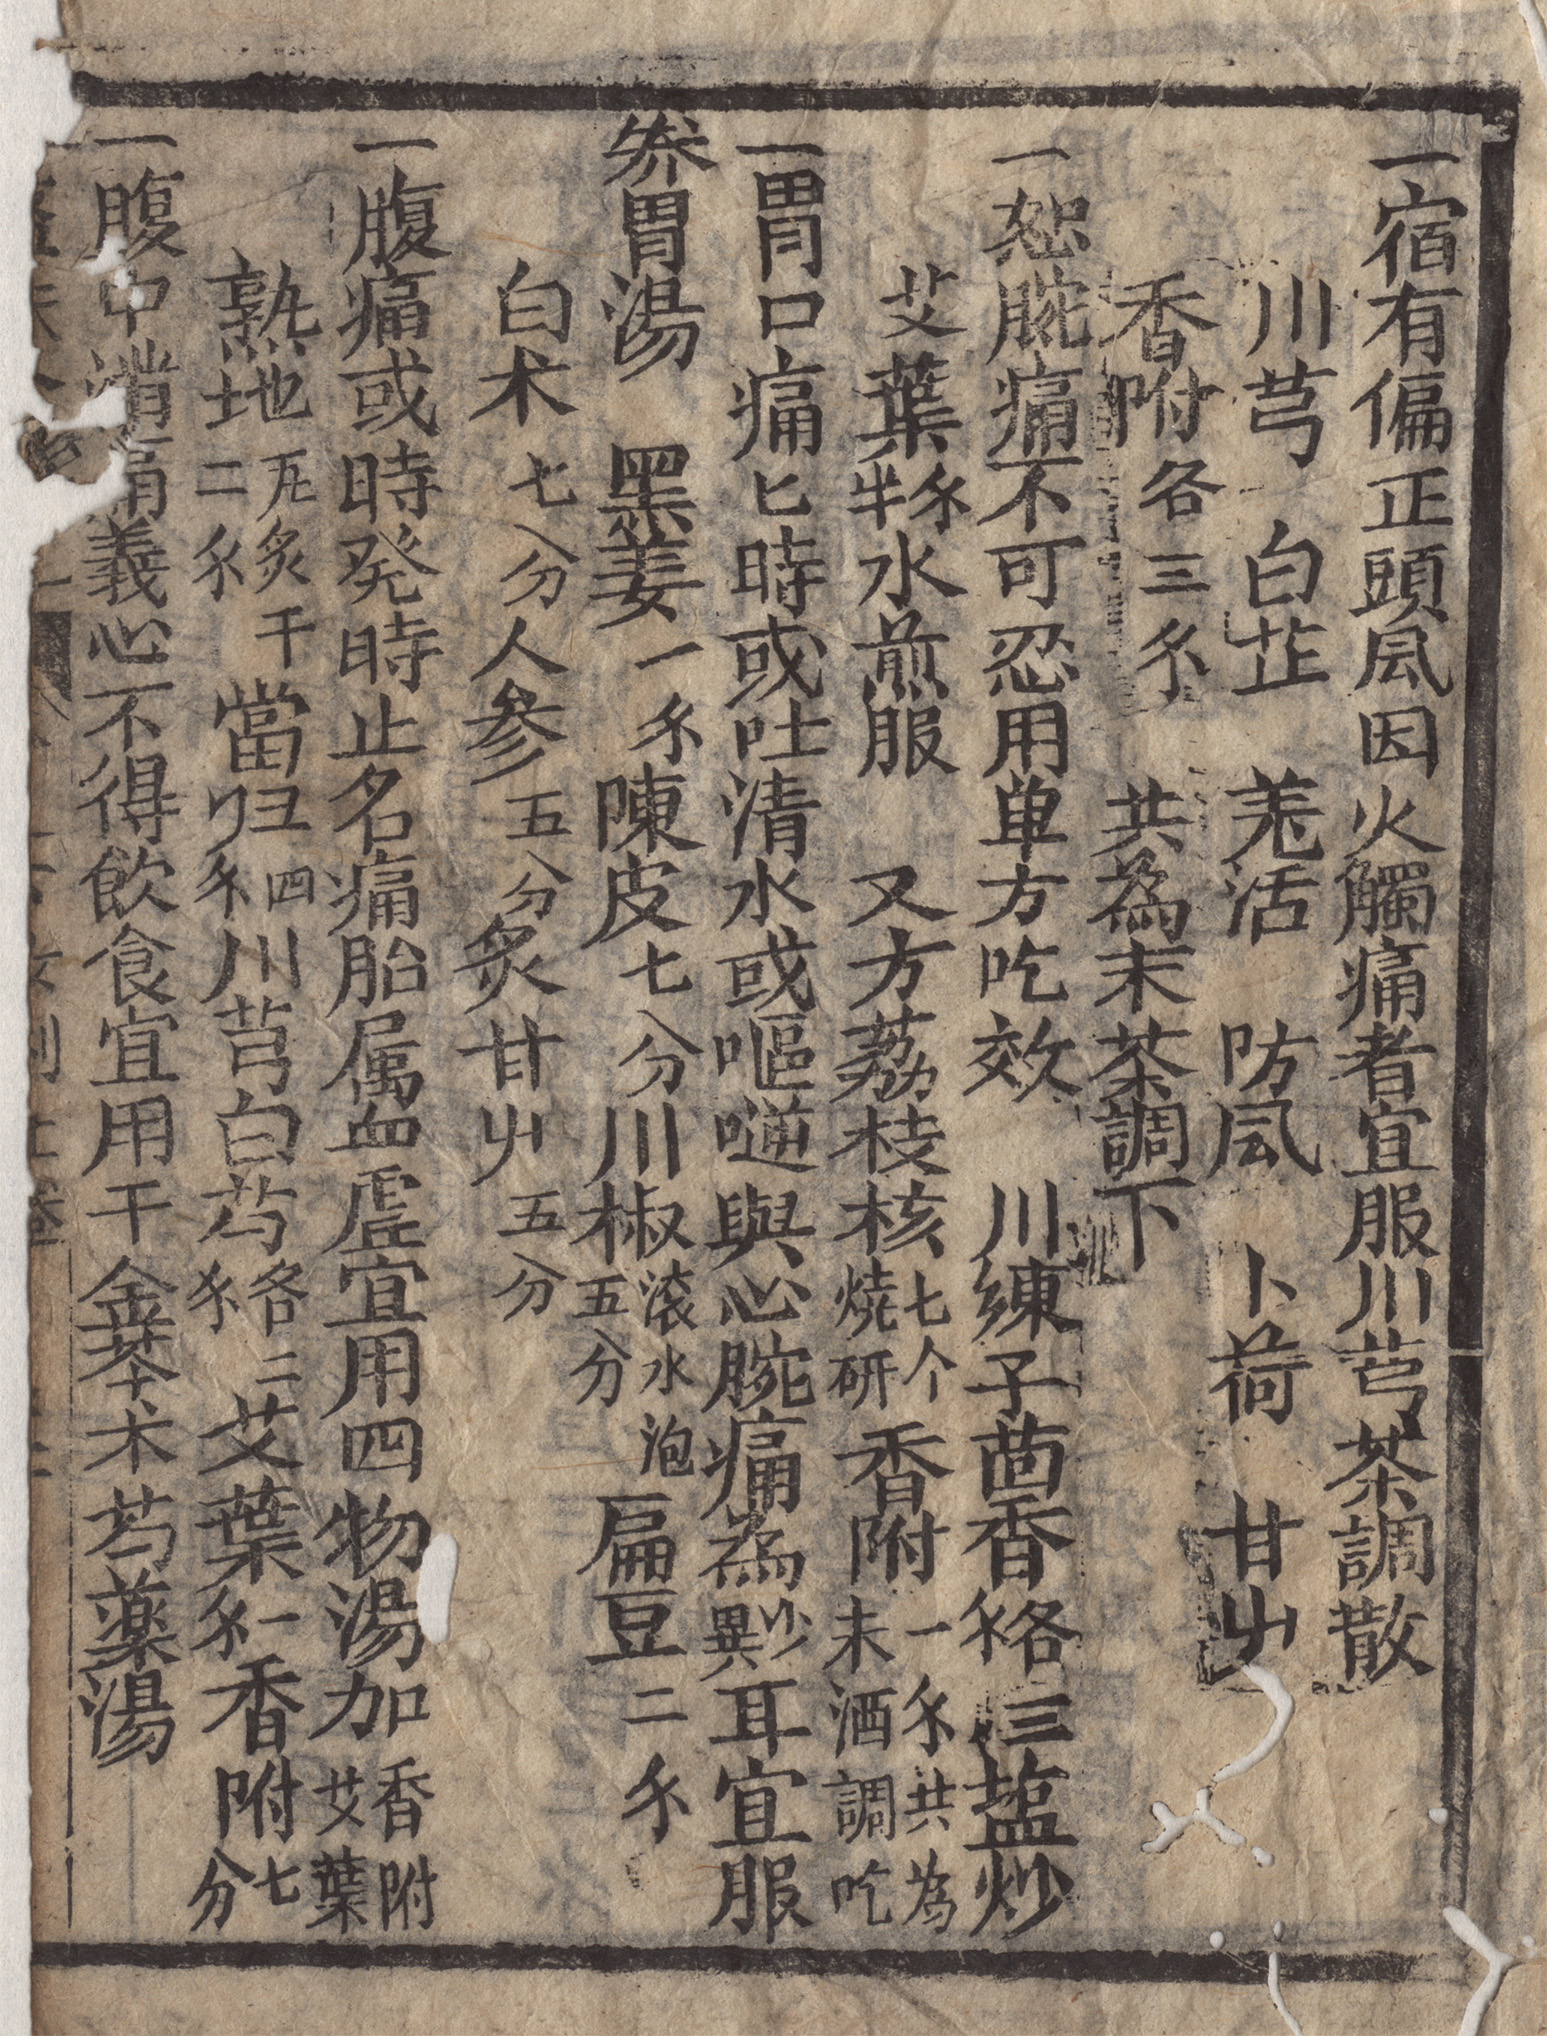 一宿有偏正頭凨因火觸痛者宜服川芎茶調散
川芎 白芷 羗活 防凨 卜荷 甘屮
香附各三 共為末茶調下
一 腕痛不可忍用単方吃效 川練子茴香各三 塩炒
艾葉半 水煎服 又方荔枝核七个燒研香附一 共為末酒調吃
一胃口痛匕時或吐清水或嘔 與心腕痛為異耳宜服
胃湯 墨姜一 陳皮七分川椒滚水泡五分扁豆二
白术七分人参五分炙甘屮五分
一腹痛或時発時止名痛胎属血虗宜用四物湯加香附艾葉
熟地 炙干二 當归四 川芎白芍各二 艾葉一 香附七分
一腹中 痛義心不得飲食宜用干金苓术芍薬湯